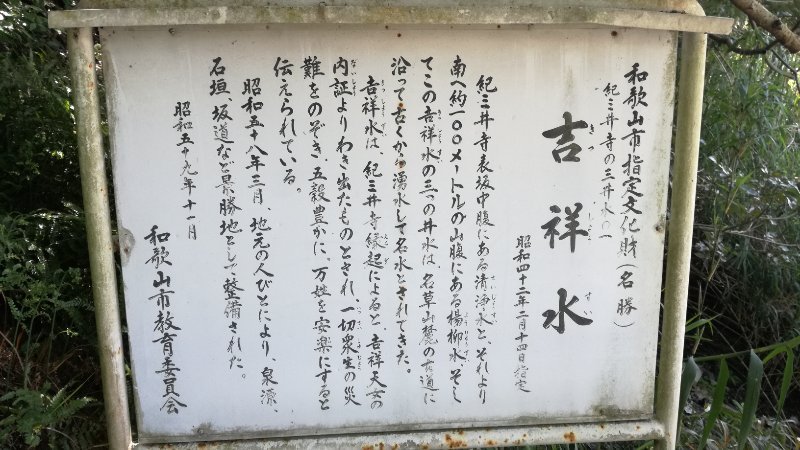 和歌山市指定文化財(名勝)
紀三井寺の三井水の一
吉祥水
きっしょうすい
昭和四十二年二月十四日指定
紀三井寺表坂中腹にある清浄水と、それより
南へ約一〇〇メートルの山腹にある楊柳水、そし
てこの吉祥水の三つの井水は、名草山麓の古道に
沿って古くから湧水して名水とされてきた。
吉祥水は、紀三井寺縁起によると、吉祥天女の
内証よりわき出たものとされ、一切衆生の災
難をのぞき、五穀豊かに、万姓を安楽にすると
伝えられている。
昭和五十八年三月、地元の人びとにより、泉源、
石垣、坂道など景勝地として整備された。
昭和五十九年十一月
和歌山市教育委員会